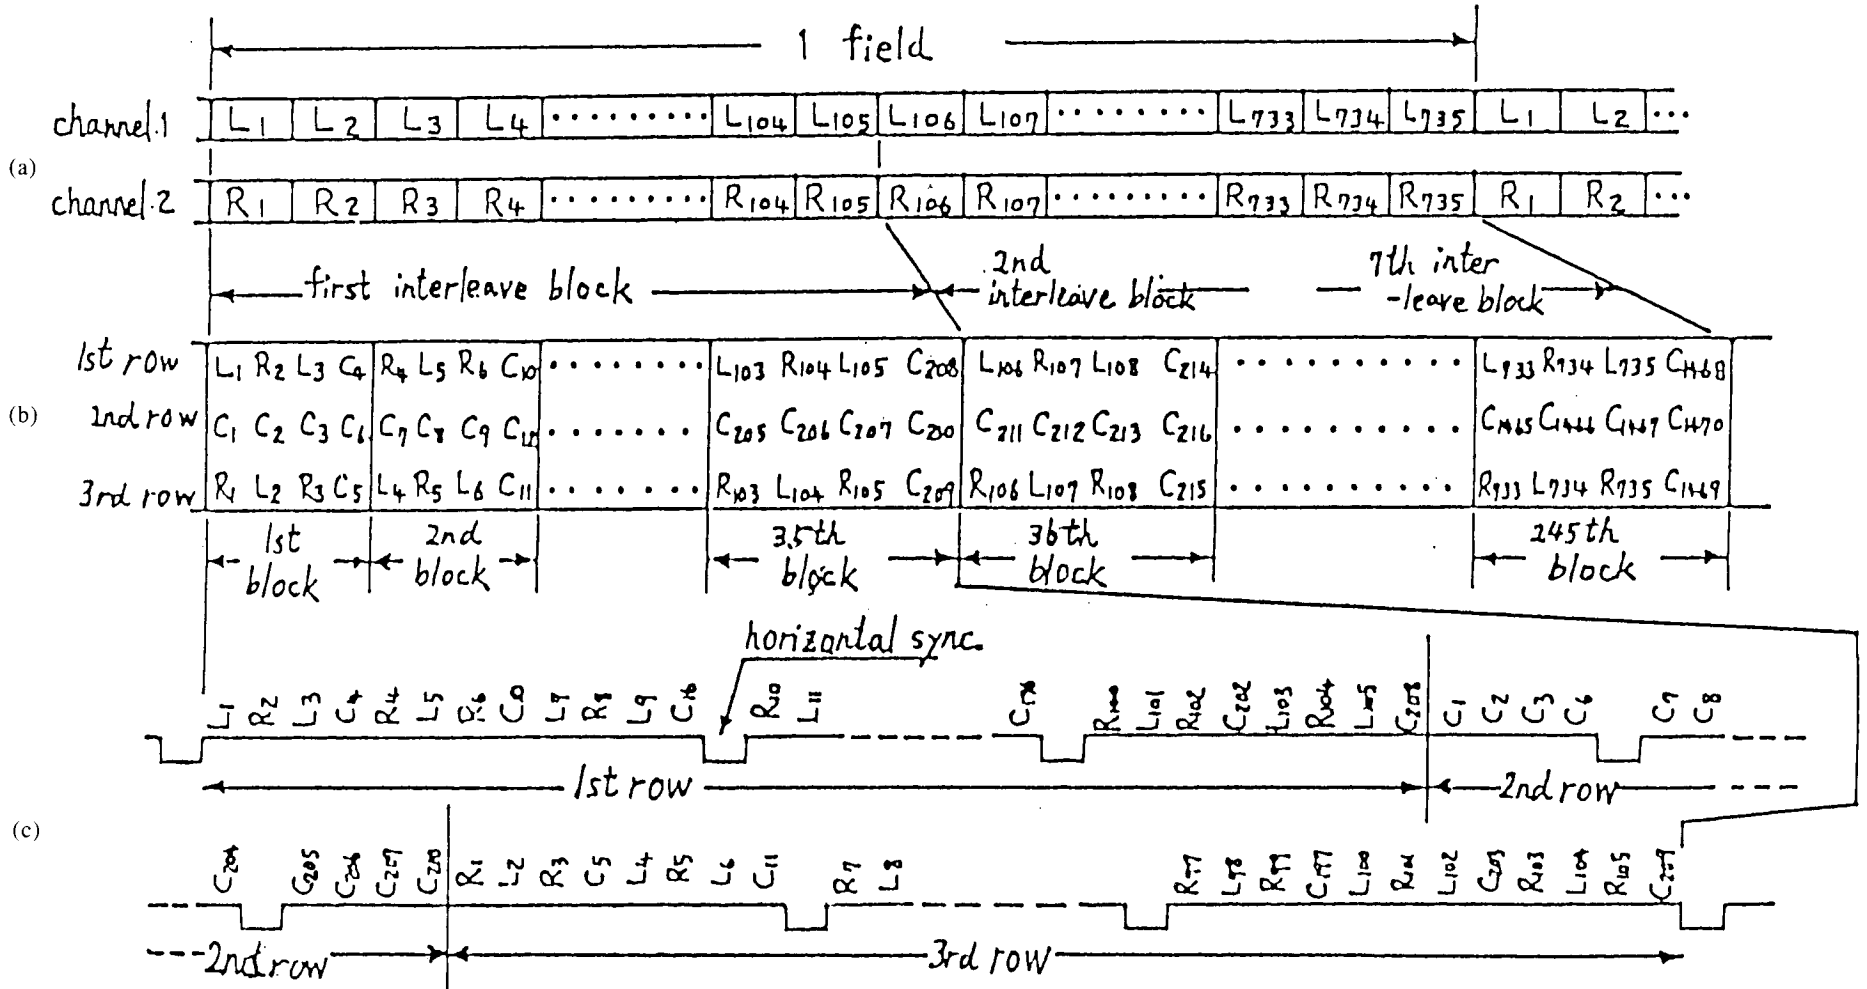 1 field
channel.1 L1 L2 L3 L4 ········· L104 L105 L106 L107 ········ L733 L734 L735 L1 L2 ···
(a)
channel.2 R1 R2 R3 R4 ········· R104 R105 R106 R107 ········ R733 R734 R735 R1 R2 ···
first interleave block
2nd
interleave block
7th inter
-leave block
1st row L1 R2 L3 C4 R4 L5 R6 C10 ········ L103 R104 L105 C208 L106 R107 L108 C214 ·········· L733 R734 L735 C1468
(b)
2nd row C1 C2 C3 C6 C7 C8 C9 C12 ······· C205 C206 C207 C210 C211 C212 C213 C216 ·········· C1465 C1466 C1467 C1470
3rd row R1 L2 R3 C5 L4 R5 L6 C11 ······· R103 L104 R105 C209 R106 L107 R108 C215 ·········· R733 L734 R735 C1469
1st
block
2nd
block
35th
block
36th
block
245th
block
horizontal sync.
L1 R2 L3 C4 R4 L5 R6 C10 L7 R8 L9 C16 R10 L11 R100 L101 R102 C202 L103 R104 L105 C208 C1 C2 C3 C6 C7 C8
1st row
2nd row
(c)
C204 C205 C206 C207 C210 R1 L2 R3 C5 L4 R5 L6 C11 R7 L8 R97 L98 R99 C197 L100 R101 L102 C203 R103 L104 R105 C209
2nd row
3rd row